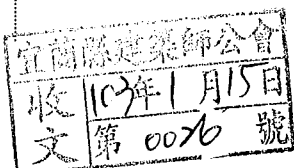 宜蘭縣建築師公會
收文
103年1月15日
第 0026 號